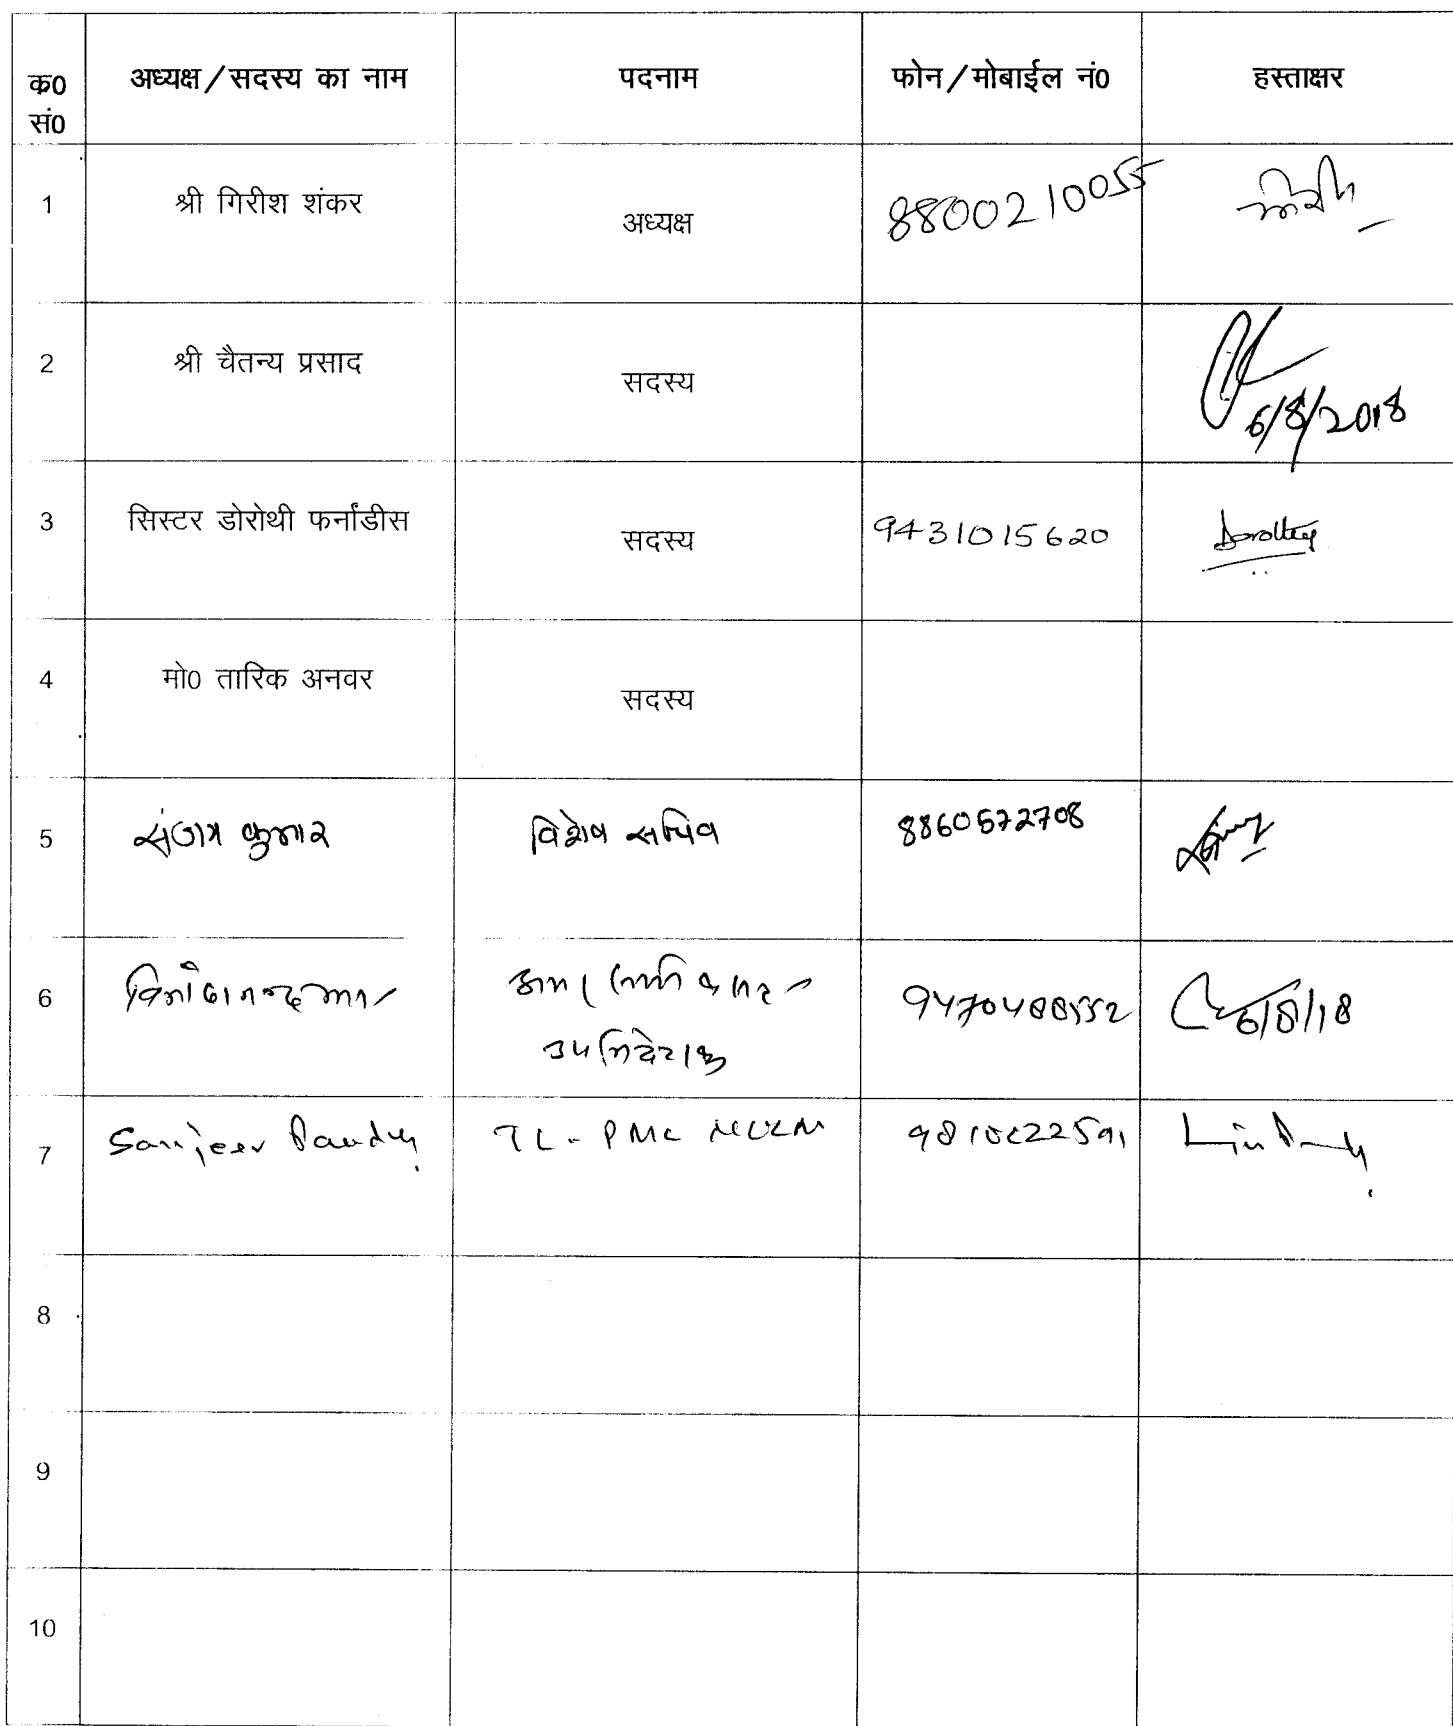 क0 सं0 अध्यक्ष/सदस्य का नाम पदनाम फोन/मोबाईल नं0 हस्ताक्षर
1 श्री गिरीश शंकर अध्यक्ष 8800210055
2 श्री चैतन्य प्रसाद सदस्य
6/8/2018
3 सिस्टर डोरोथी फर्नांडीस सदस्य 9431015620 Dorothy
4 मो0 तारिक अनवर सदस्य
5 संजय कुमार विशेष सचिव 8860572708
6 उप निदेशक 6/8/18
7 Sanjeev Pandey TL - PMC NULM
8
9
10